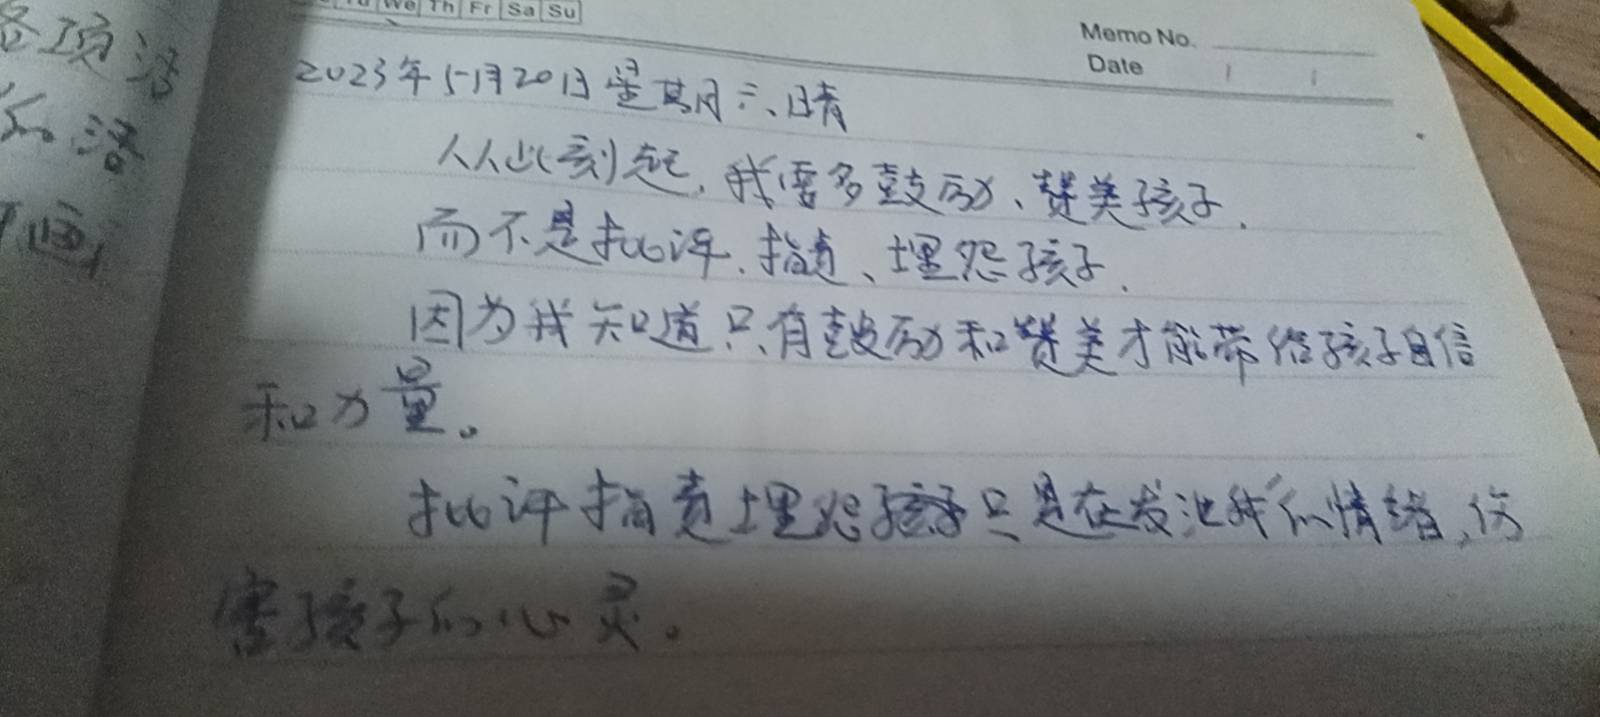 We Th Fr Sa Su
Memo No.
Date
2023年5月20日星期六、晴
从此刻起,我要多鼓励、赞美孩子,
而不是批评、指责、埋怨孩子.
因为我知道只有鼓励和赞美才能带给孩子自信
和力量。
批评指责埋怨孩子只是在发泄我的情绪,伤
害孩子的心灵。
各项活
的活
画